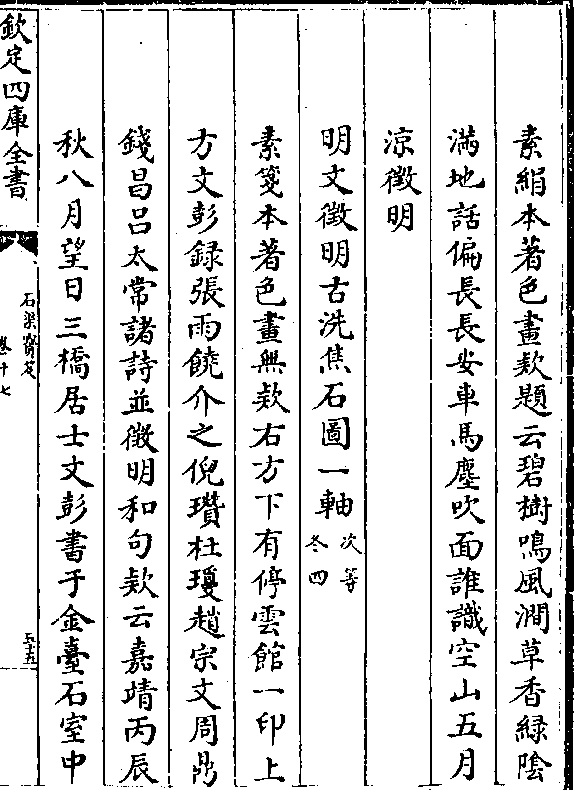 素絹本著色畫欵題云碧樹鳴風澗草香緑陰
滿地話偏長長安車馬塵吹面誰識空山五月
涼徴明
明文徴明古洗焦石圖一軸次等
冬四
素箋本著色畫無欵右方下有停雲館一印上
方文彭録張雨饒介之倪瓚杜瓊趙宗文周鼎
錢昌吕太常諸詩並徴明和句欵云嘉靖丙辰
秋八月望日三橋居士文彭書于金臺石室中
欽定四庫全書
石渠寳笈
卷十七
五十五